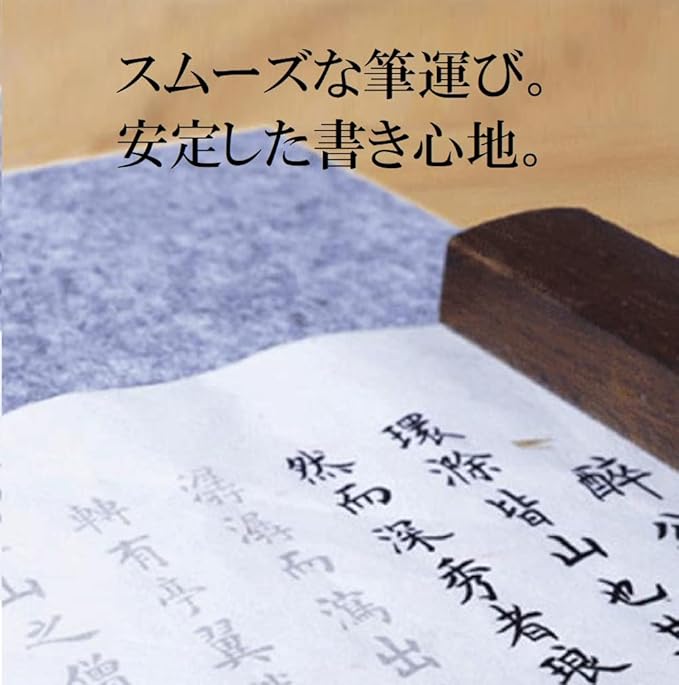 スムーズな筆運び。
安定した書き心地。
醉公
環滁皆山也其
然而深秀者琅
潺潺而瀉出
轉有亭翼
山之僧